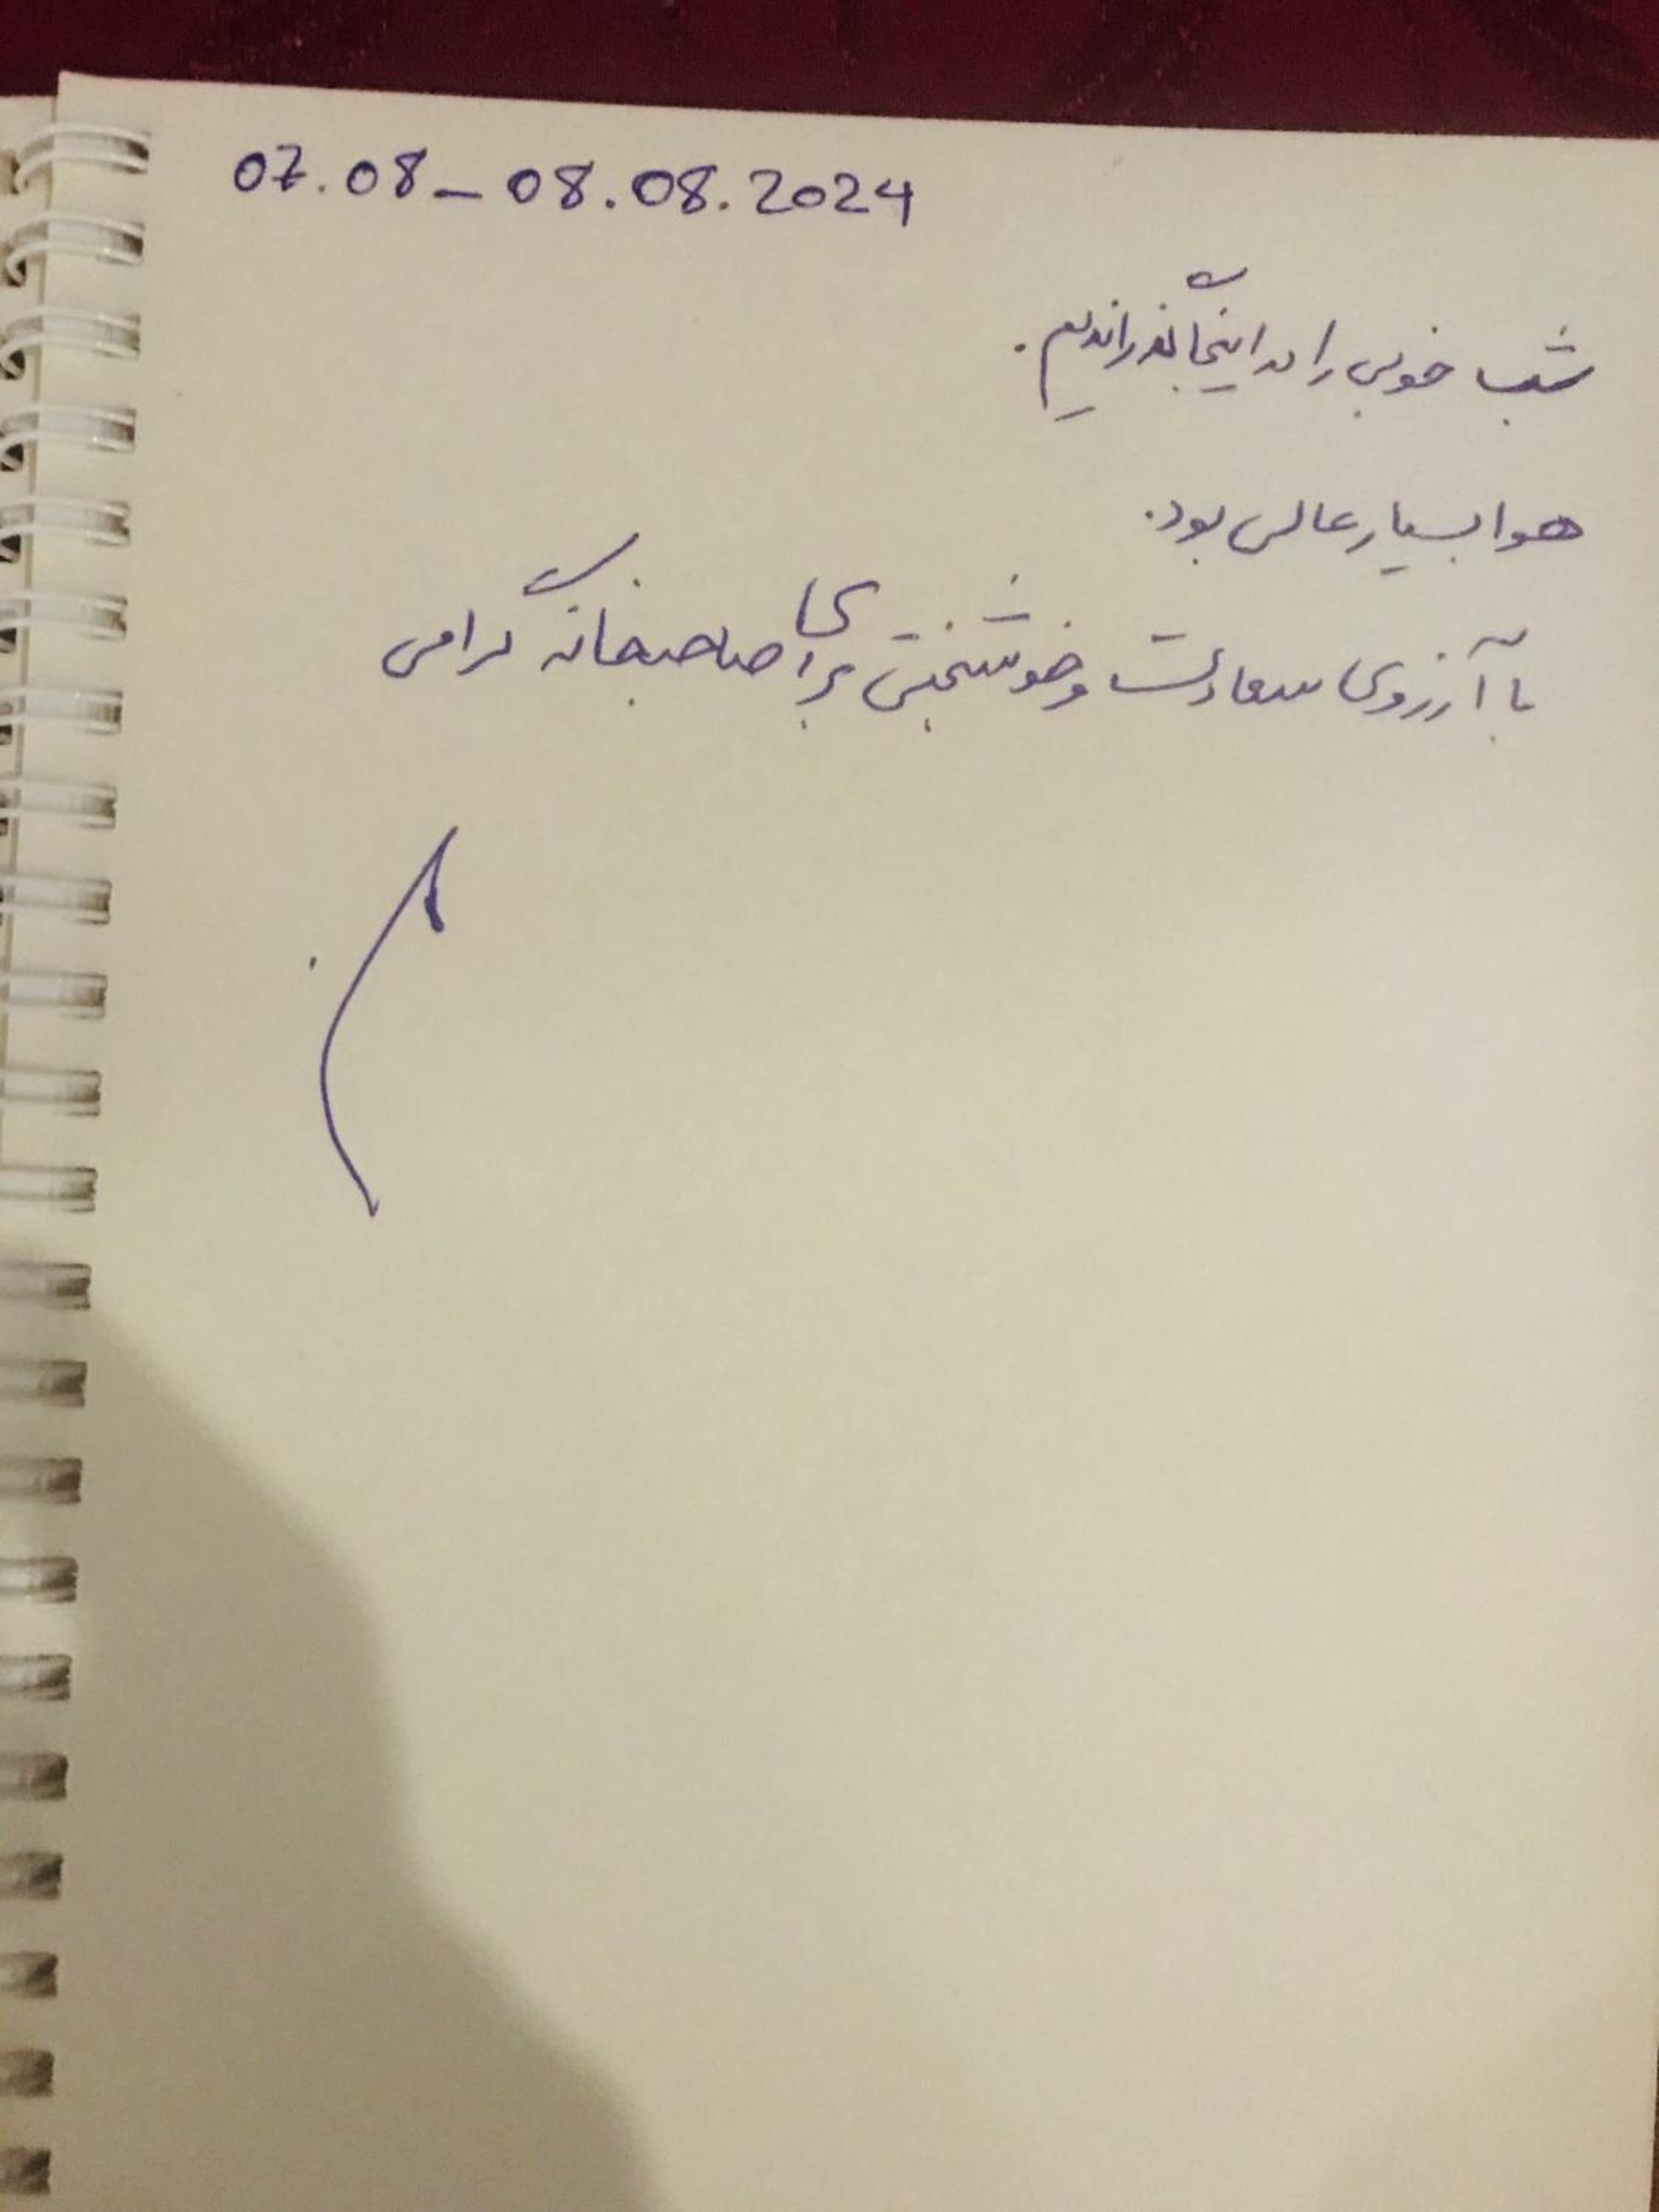 07.08-08.08.2024
شب خوبی را در اینجا گذراندیم.
هوا بسیار عالی بود.
با آرزوی سعادت و خوشبختی برای صاحبخانه گرامی